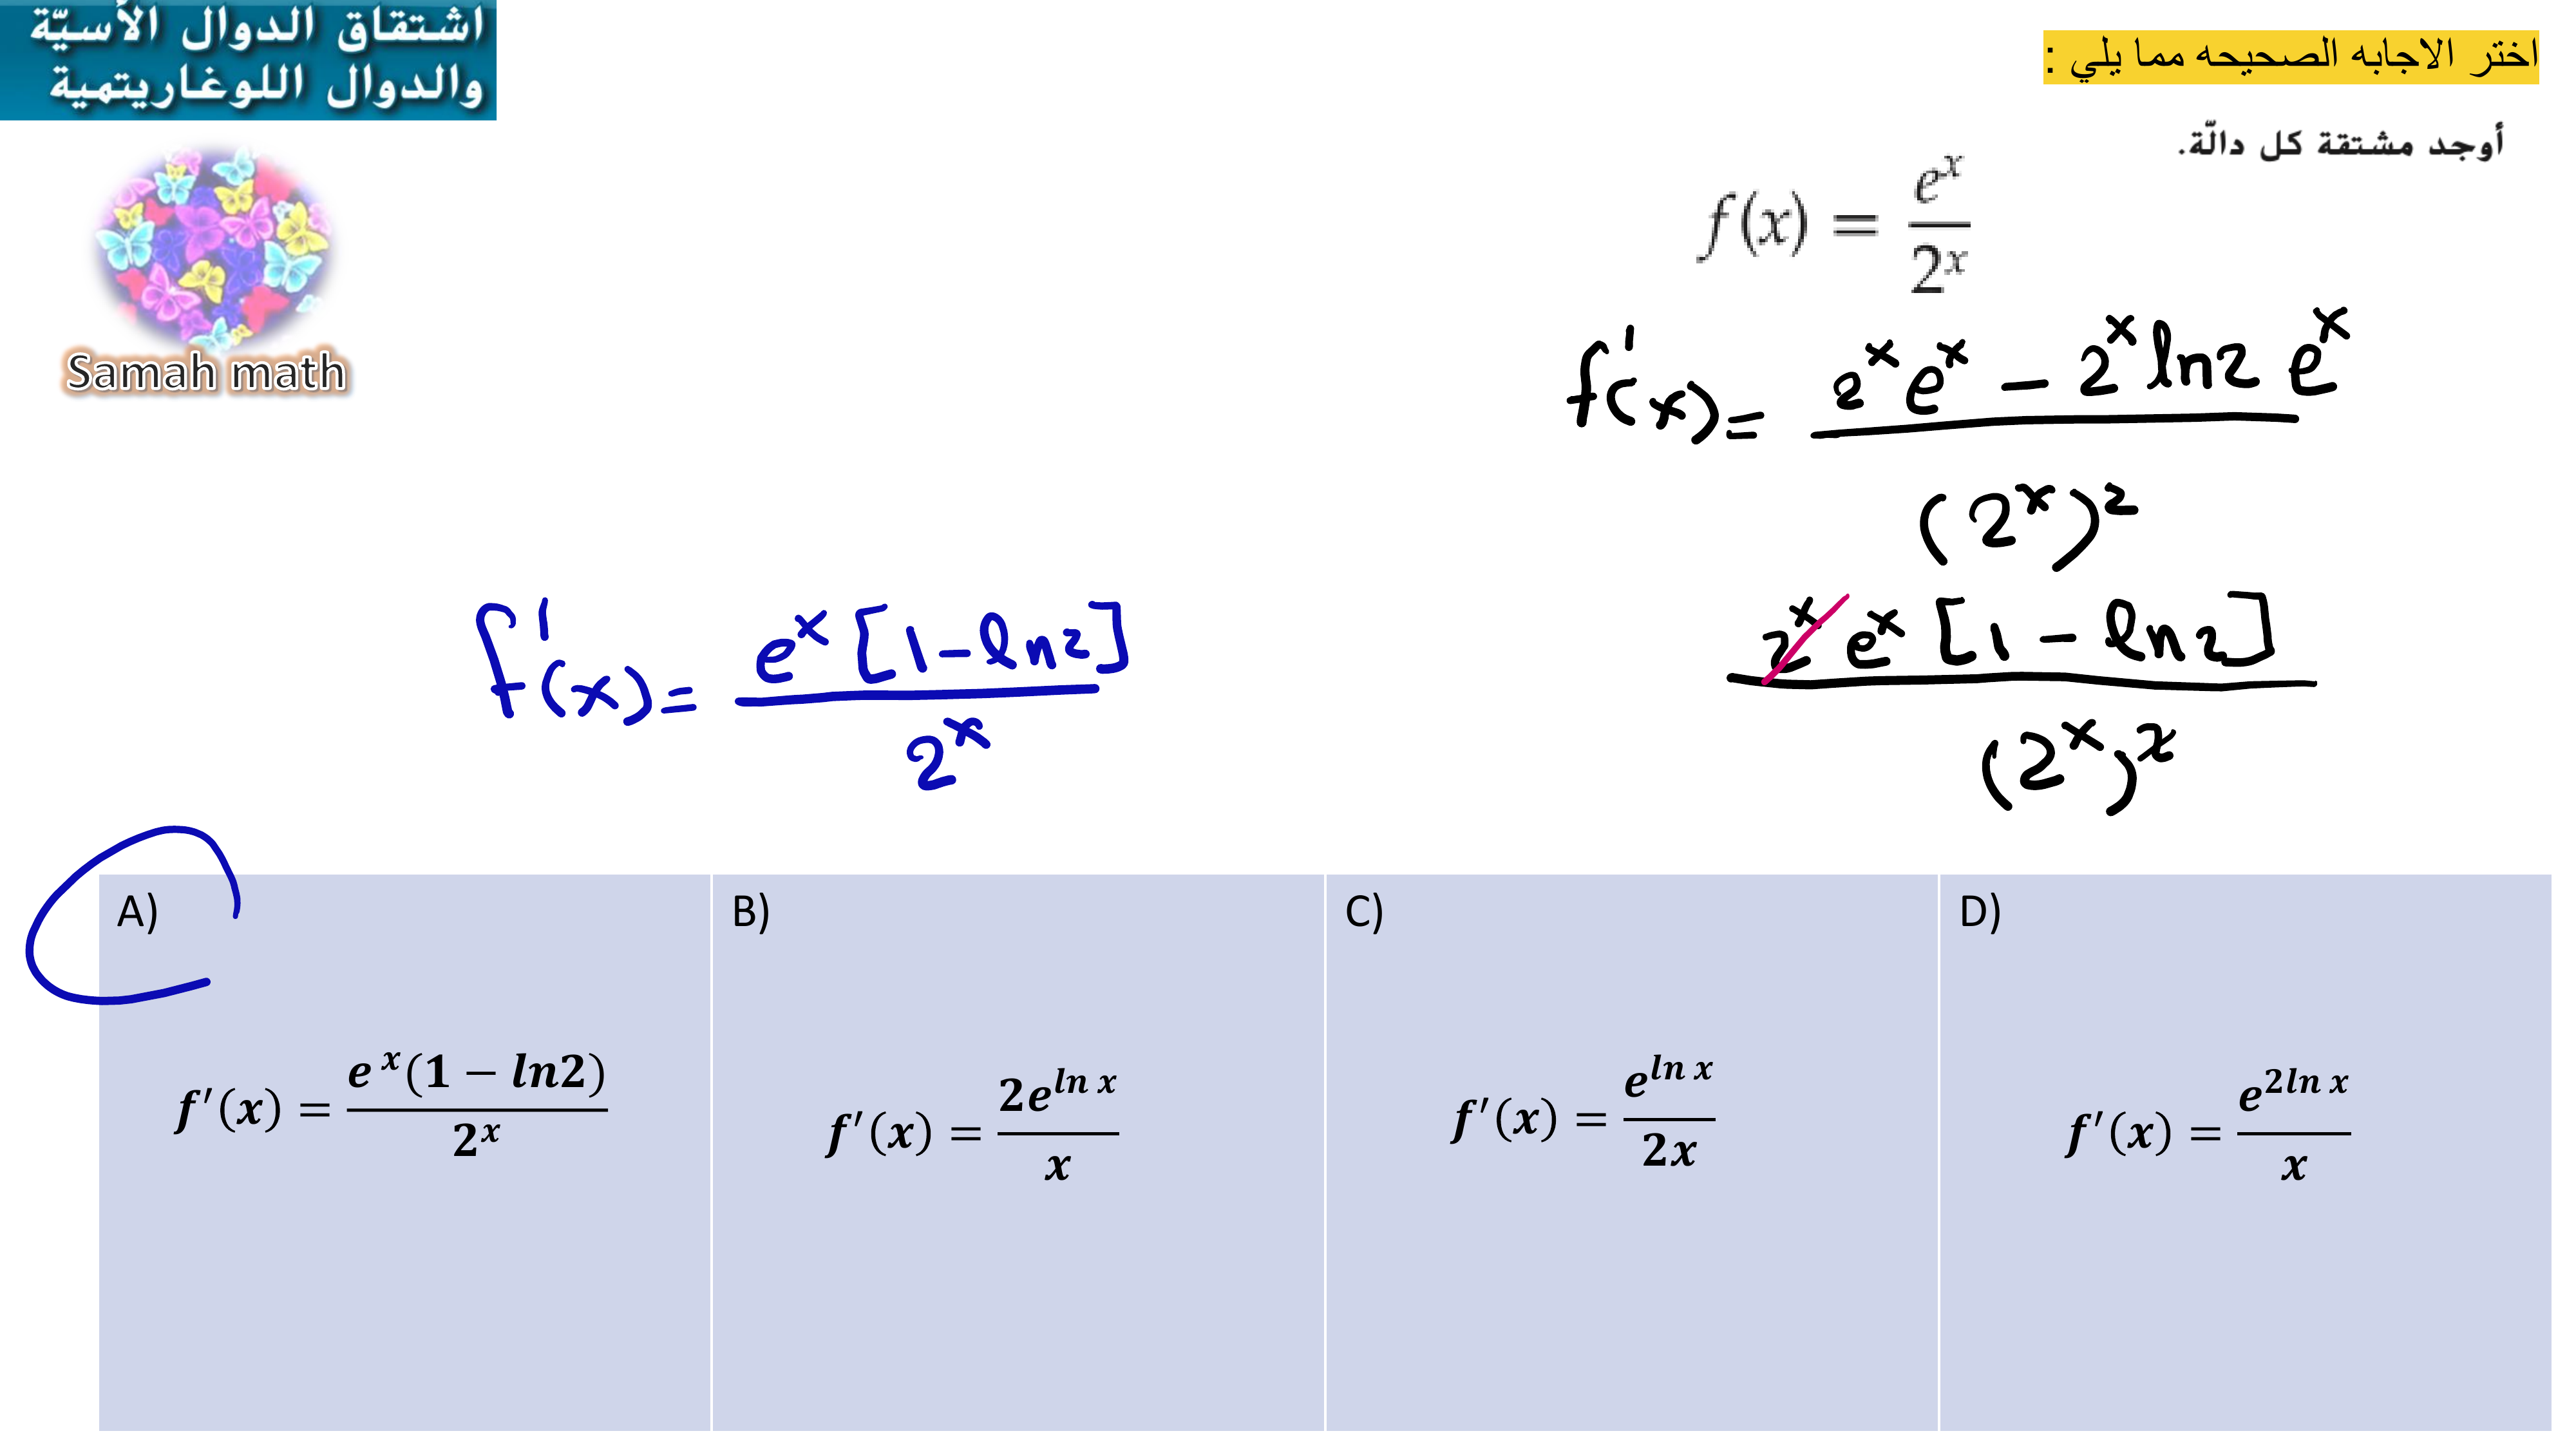 اشتقاق الدوال الأسيّة
والدوال اللوغاريتمية
Samah math
اختر الاجابه الصحيحه مما يلي :
أوجد مشتقة كل دالّة.
f(x) = e^x / 2^x
f'(x) = (2^x e^x - 2^x ln2 e^x) / (2^x)^2
2^x e^x [1 - ln2] / (2^x)^2
f'(x) = e^x [1 - ln2] / 2^x
A)
f'(x) = e^x(1 - ln2) / 2^x
B)
f'(x) = 2e^{ln x} / x
C)
f'(x) = e^{ln x} / 2x
D)
f'(x) = e^{2ln x} / x